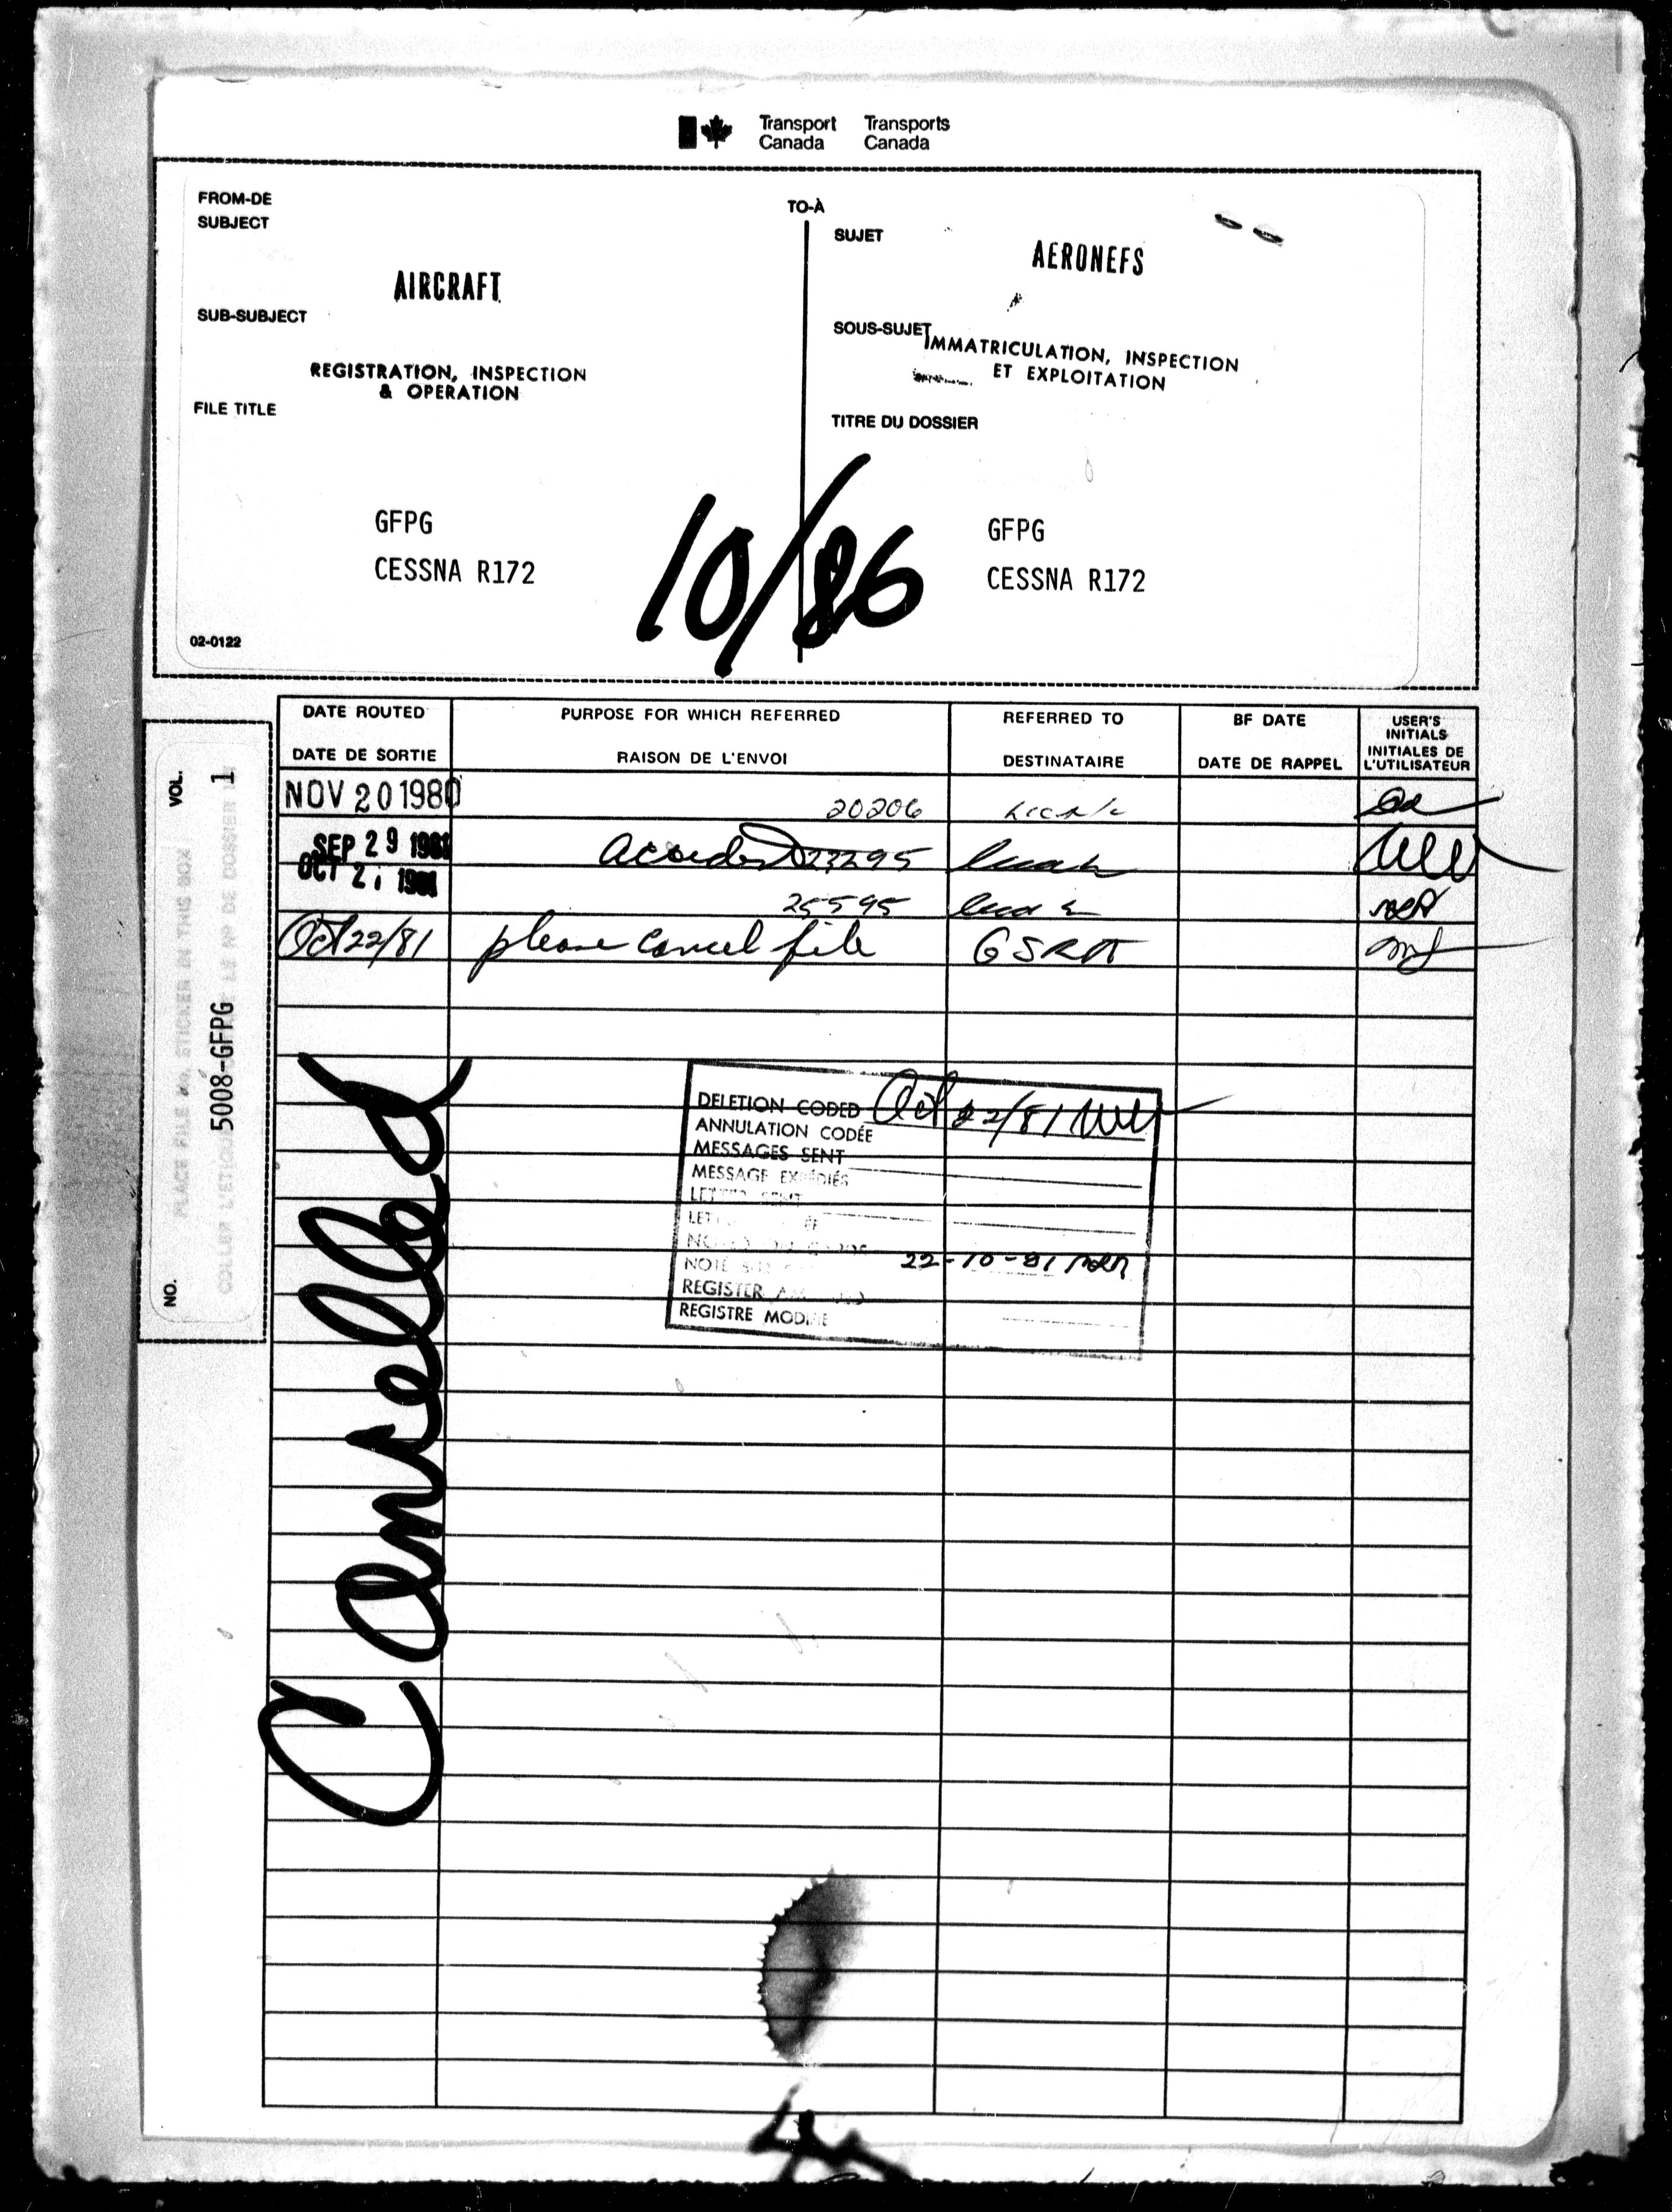 Transport Canada
Transports Canada
FROM-DE
SUBJECT
AIRCRAFT
SUB-SUBJECT
REGISTRATION, INSPECTION
& OPERATION
FILE TITLE
GFPG
CESSNA R172
02-0122
TO-À
SUJET
AERONEFS
SOUS-SUJET
IMMATRICULATION, INSPECTION
ET EXPLOITATION
TITRE DU DOSSIER
GFPG
CESSNA R172
10/86
DATE ROUTED
DATE DE SORTIE
PURPOSE FOR WHICH REFERRED
RAISON DE L'ENVOI
REFERRED TO
DESTINATAIRE
BF DATE
DATE DE RAPPEL
USER'S
INITIALS
INITIALES DE
L'UTILISATEUR
NOV 20 1980 20206
SEP 29 1981 23295
OCT 21 1981 25595
Oct 22/81 please cancel file
VOL. 1
PLACE FILE NO. STICKER IN THIS BOX
5008-GFPG
NO.
Cancelled
DELETION CODED Oct 22/81
ANNULATION CODÉE
MESSAGES SENT
MESSAGE EXPÉDIÉS
22-10-81
REGISTER
REGISTRE MODIFIE